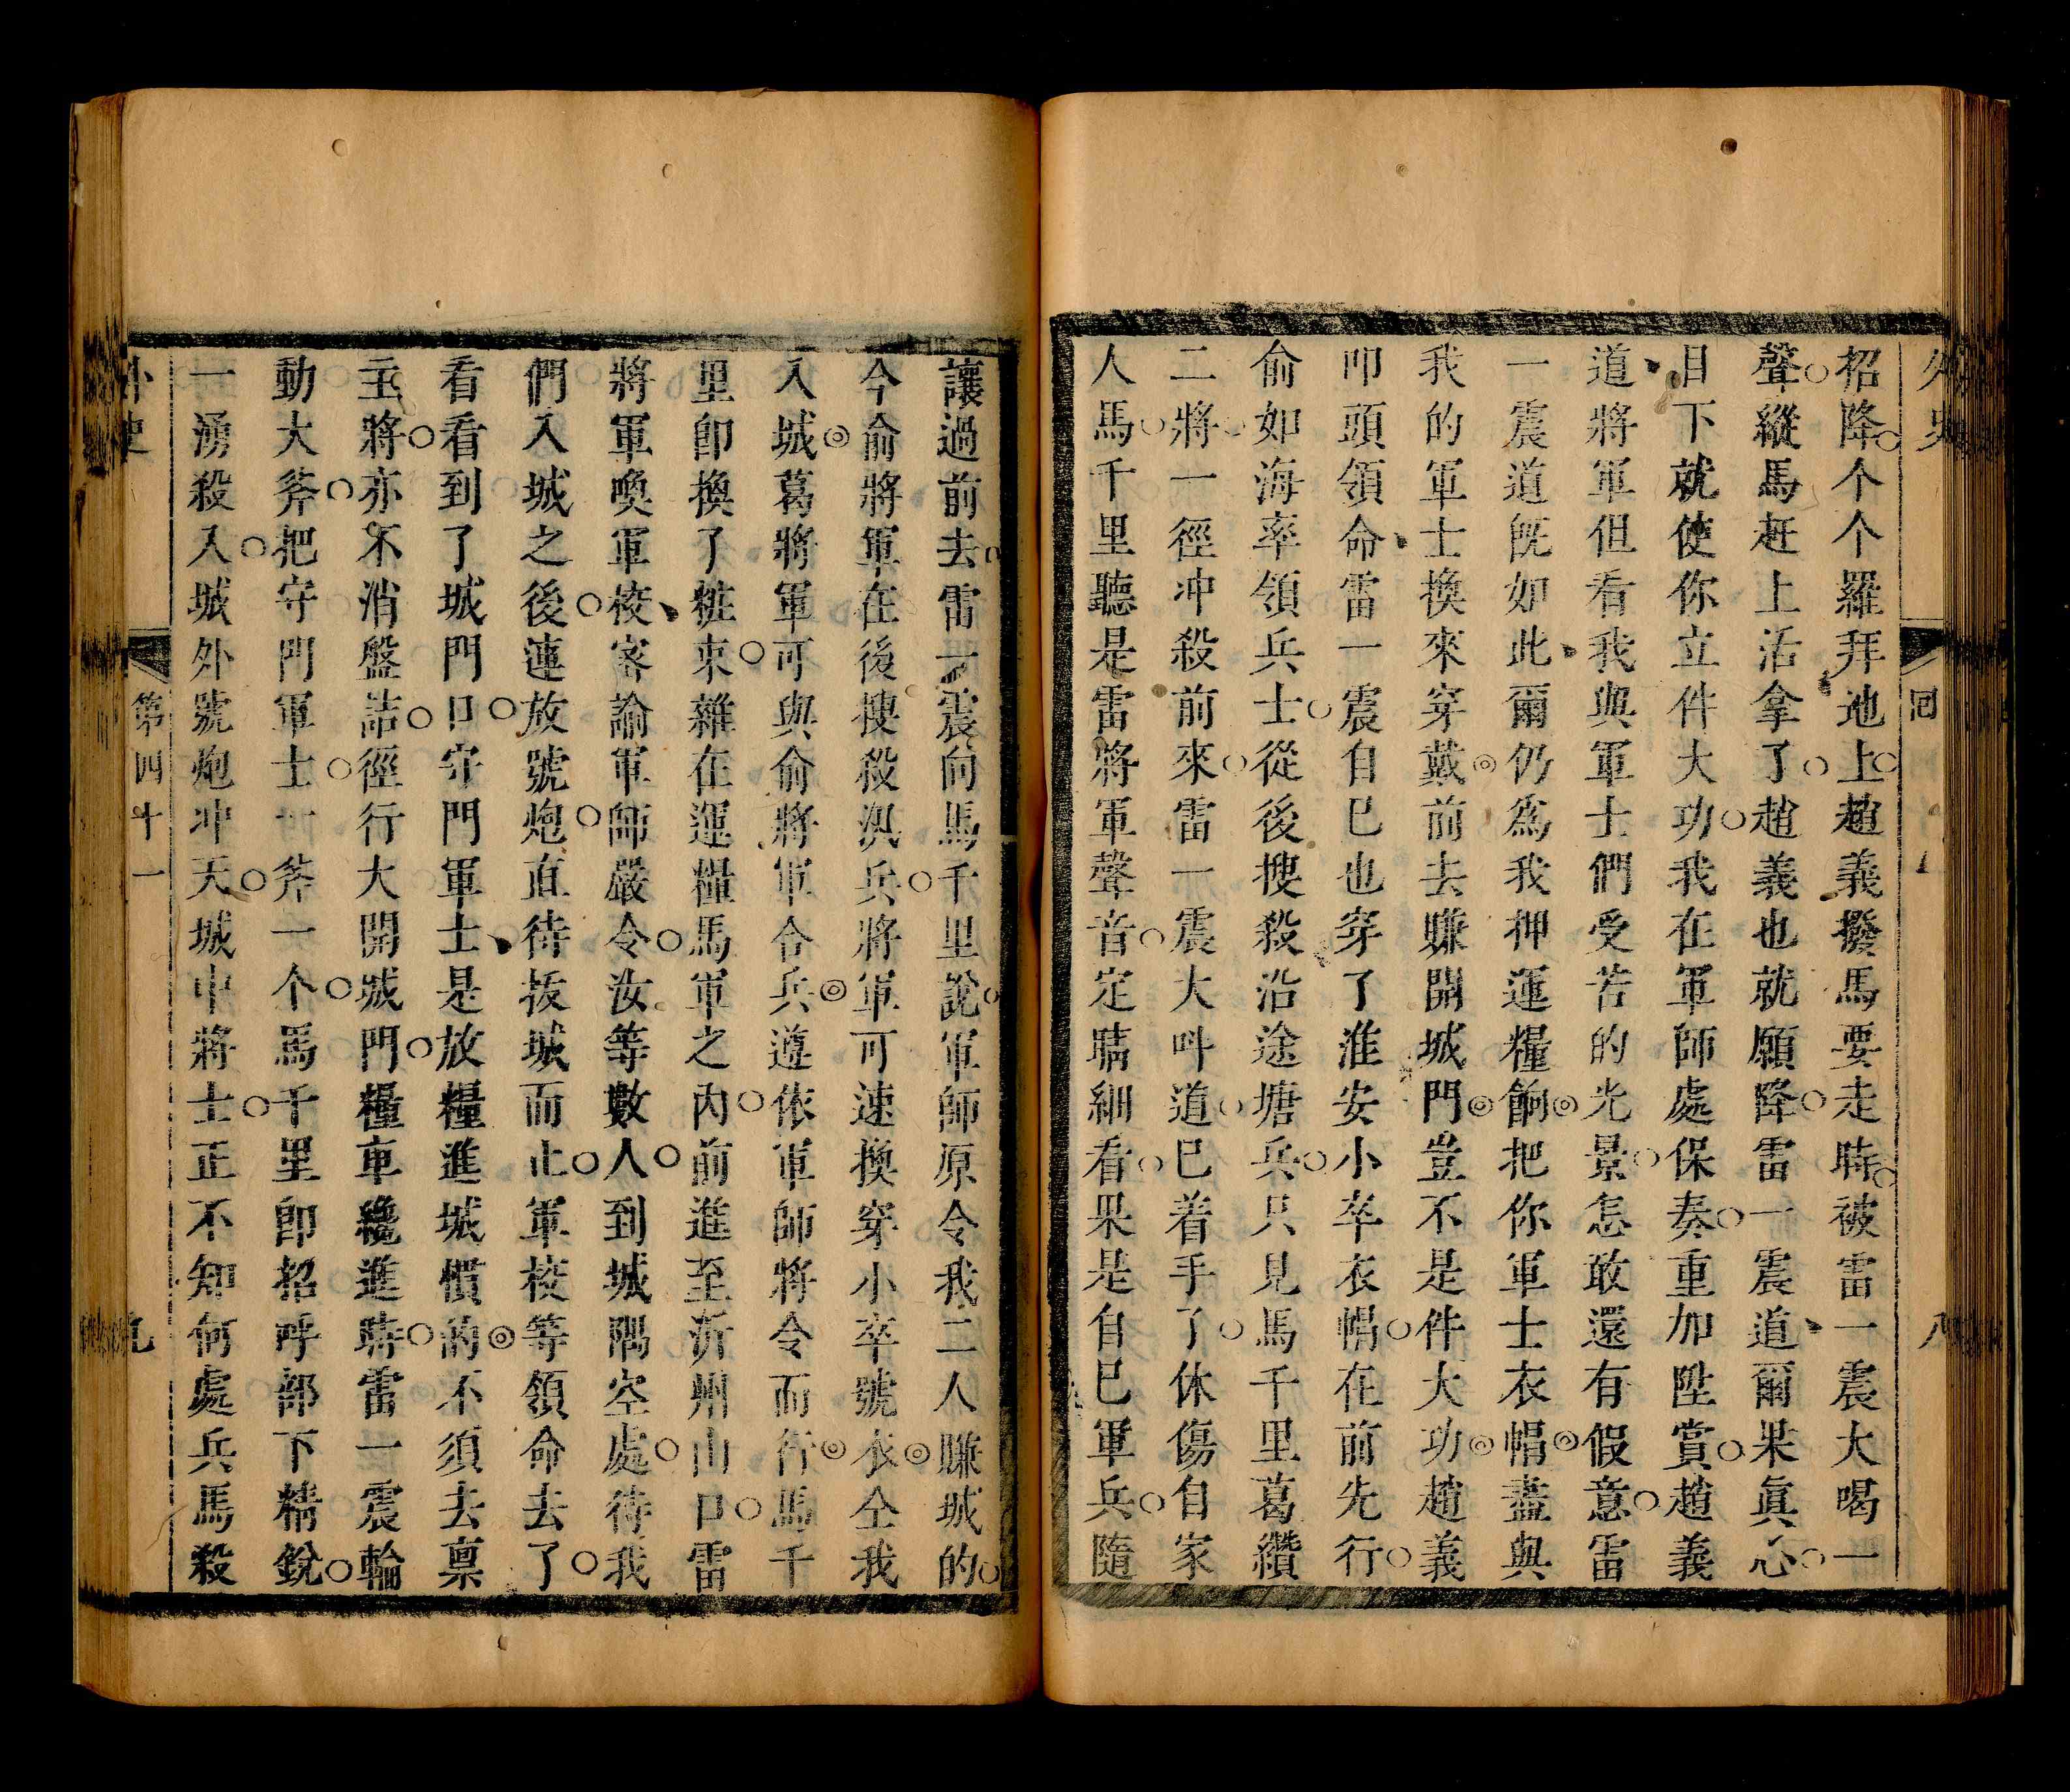 外史
回
八
招降个个羅拜地上趙義撥馬要走時被雷一震大喝一
聲縱馬赶上活拿了趙義也就願降雷一震道爾果眞心
目下就使你立件大功我在軍師處保奏重加陞賞趙義
道將軍但看我與軍士們受苦的光景怎敢還有假意雷
一震道既如此爾仍爲我押運糧餉把你軍士衣帽盡與
我的軍士換來穿戴前去賺開城門豈不是件大功趙義
叩頭領命雷一震自巳也穿了淮安小卒衣帽在前先行
俞如海率領兵士從後搜殺沿途塘兵只見馬千里葛纘
二將一徑冲殺前來雷一震大呌道巳着手了休傷自家
人馬千里聽是雷將軍聲音定睛細看果是自巳軍兵隨
讓過前去雷一震向馬千里說軍師原令我二人賺城的
今俞將軍在後搜殺汛兵將軍可速換穿小卒號衣仝我
入城葛將軍可與俞將軍合兵遵依軍師將令而行馬千
里卽換了粧束雜在運糧馬軍之內前進至沂州山口雷
將軍喚軍校密諭軍師嚴令汝等數人到城隅空處待我
們入城之後連放號炮直待拔城而止軍校等領命去了
看看到了城門口守門軍士是放糧進城慣的不須去禀
主將亦不消盤詰徑行大開城門糧車纔進時雷一震輪
動大斧把守門軍士一斧一个馬千里卽招呼部下精銳
一湧殺入城外號炮冲天城中將士正不知何處兵馬殺
外史
第四十一
九